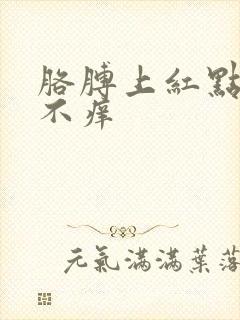 胳膊上紅點
不癢
元氣滿滿葉落